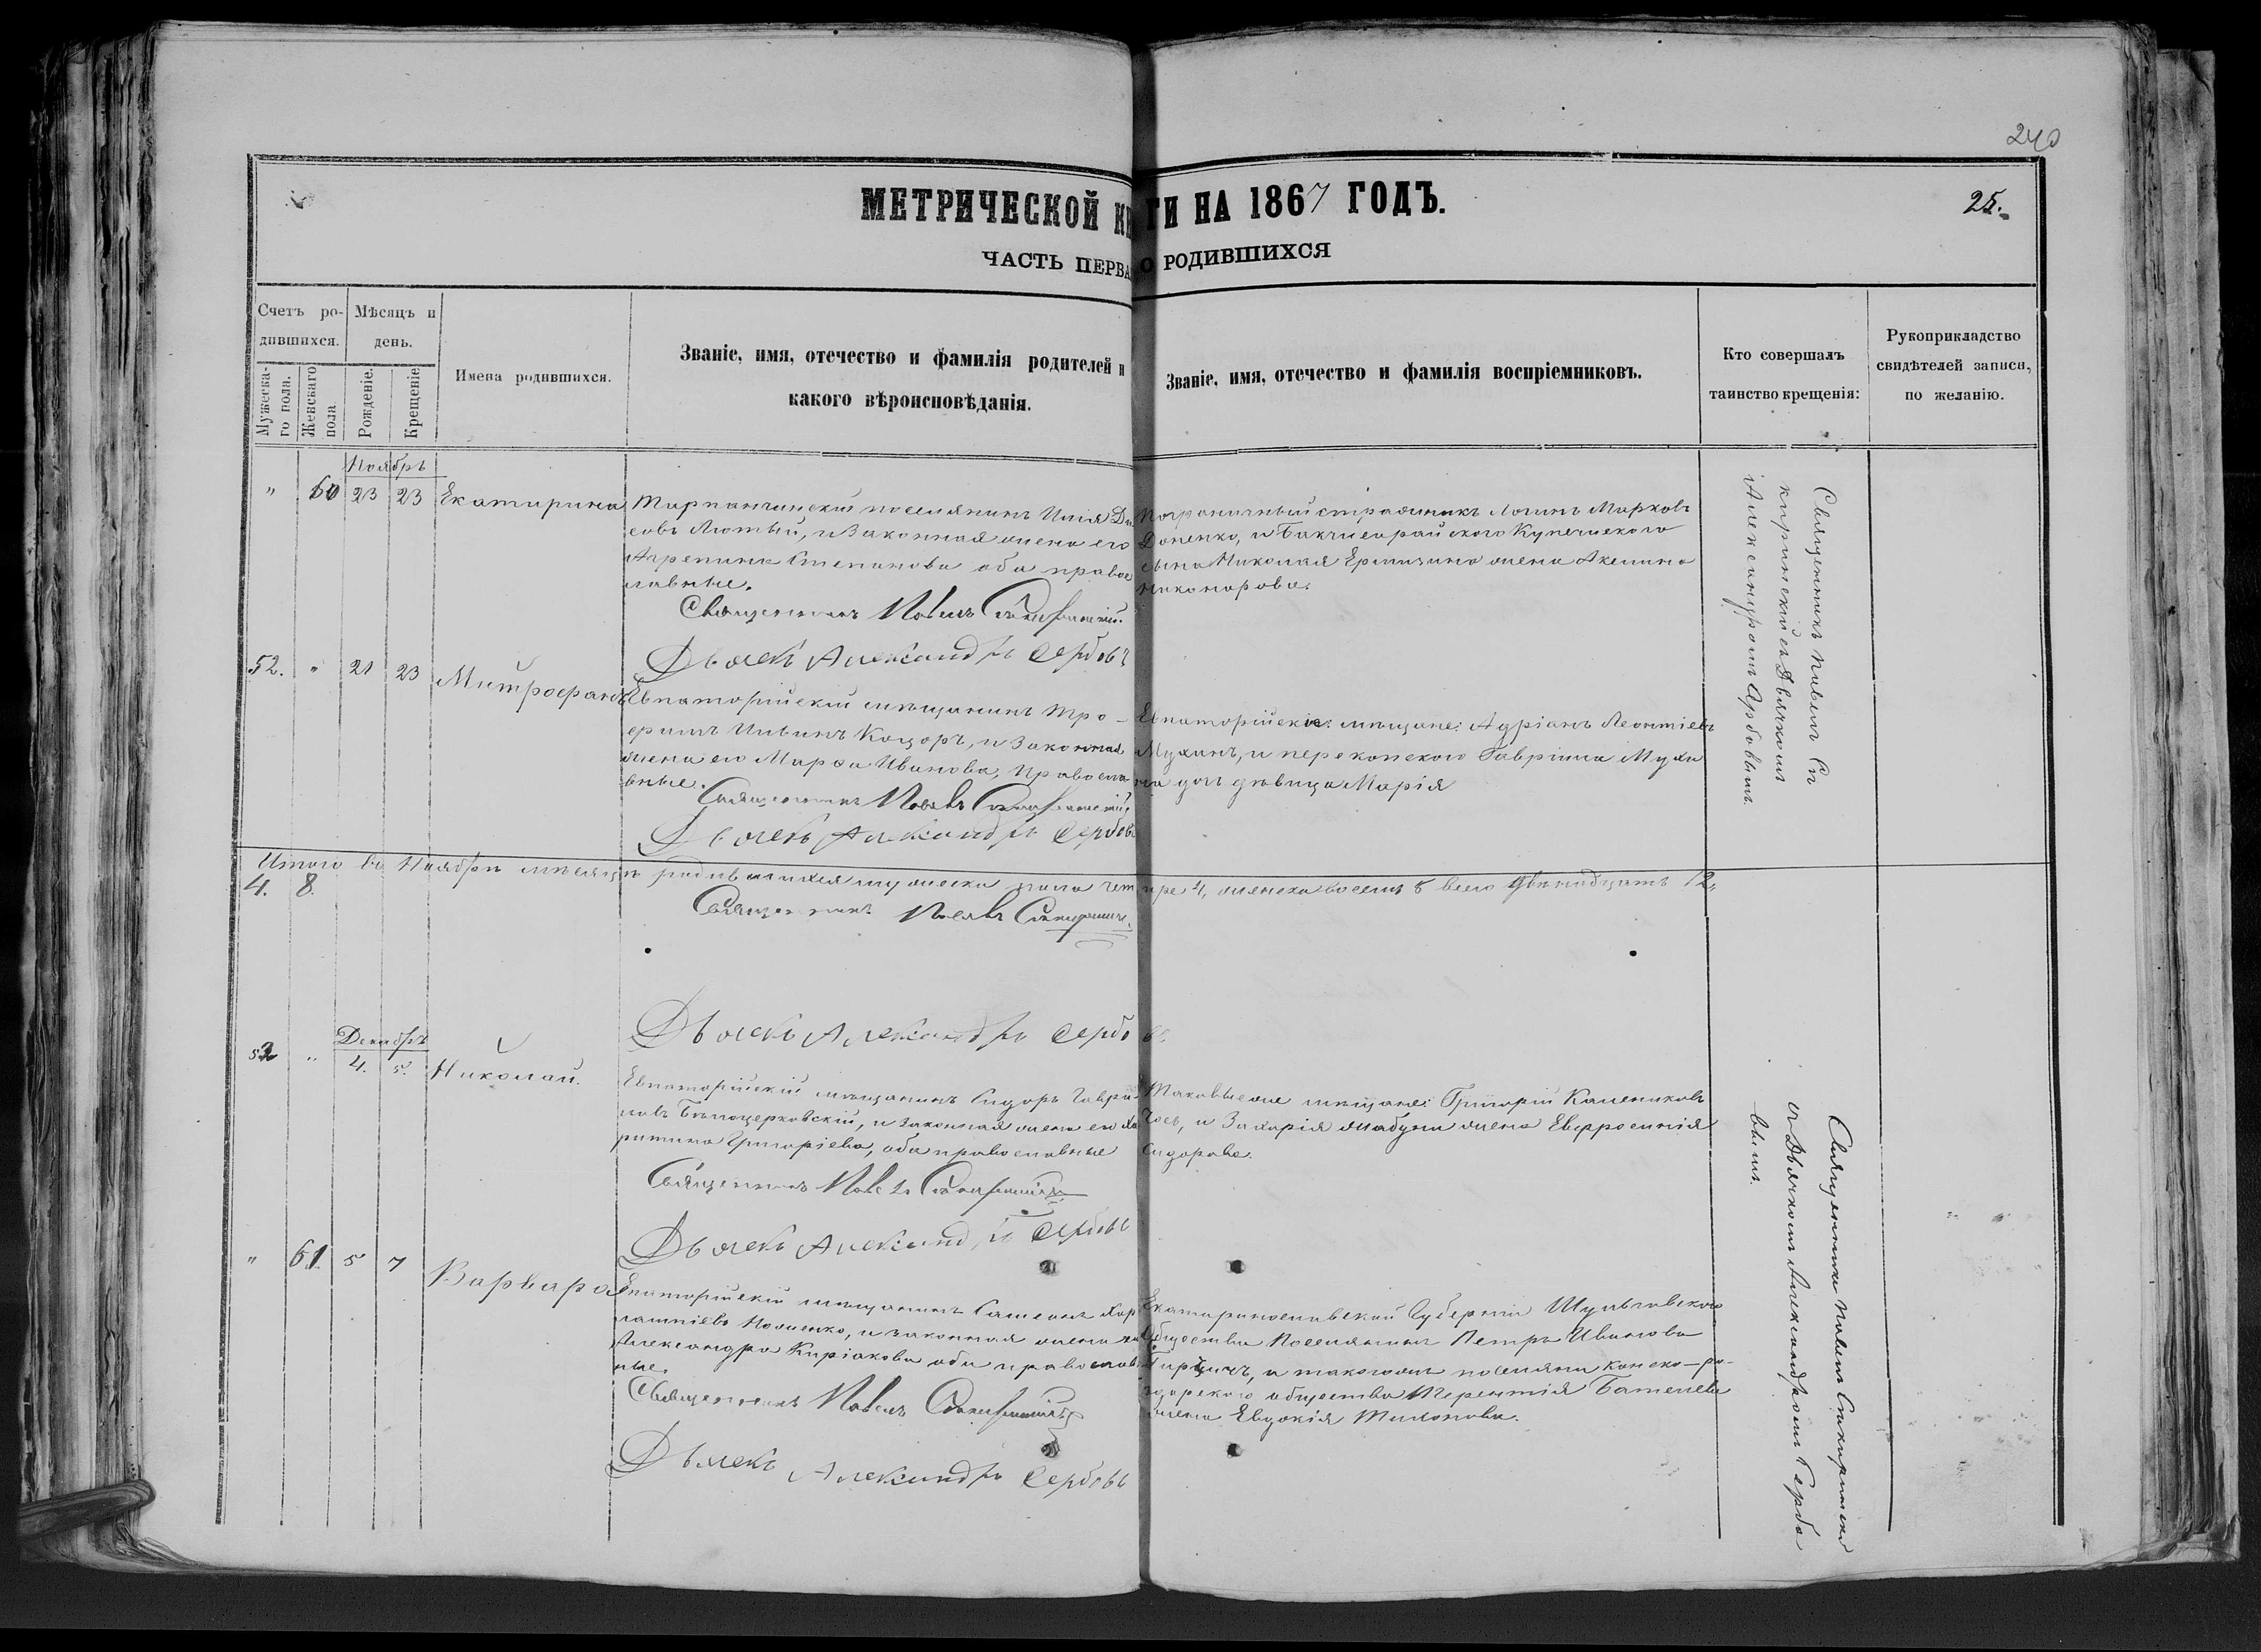 240
МЕТРИЧЕСКОЙ КН ГИ НА 1867 ГОДЪ.
25.
ЧАСТЬ ПЕРВА О РОДИВШИХСЯ
Счетъ ро-
дившихся.
Мужеска-
го пола.
Женскаго
пола
Мѣсяцъ и
день.
Рожденіе.
Крещеніе
Имена родившихся.
Званіе, имя, отечество и фамилія родителей и
какого вѣроисповѣданія.
Званіе, имя, отечество и фамилія воспріемниковъ.
Кто совершалъ
таинство крещенія:
Рукоприкладство
свидѣтелей записи,
по желанію.
Ноябрь
" 60 23 23 Екатирина
поселянинъ Илія
совъ Лютый, и Законная жена его
Агрепина Степанова оба право
славные.
Священникъ Павелъ
Дьячекъ Александръ Сербовъ
Пограничный стражникъ Логинъ Марковъ
Доненко, и Бакчисарайского Купеческого
сына Николая жена Акелина
Никонорова.
Священникъ Павелъ Си
киринскій съ Дьячкомъ
Александромъ Сербовымъ.
52. " 21 23 Митрофанъ
Евпаторійскій мѣщанинъ Тро-
фимъ Кацоръ, и Законная
жена его Марфа Иванова, Правосла
вные.
Священникъ Павелъ
Дьячекъ Александръ Сербовъ
Евпаторійскіе: мѣщане: Адріанъ Леонтіевъ
Мухинъ, и перекопского Гавріила Мухи
на дочь дѣвица Марія
Итого въ Ноябрѣ мѣсяцѣ родившихся мужеска пола четыре 4, женска восемь 8 всего двѣнадцать 12.
4. 8.
Священникъ Павелъ
Дьячекъ Александръ Сербовъ
Декабрь
53 " 4. 5. Николай.
Евпаторійскій мѣщанинъ Сидоръ Гаври
ловъ Бѣлоцерковскій, и законная жена его Ха
ритина Григоріева, оба православные
Священникъ Павелъ
Дьячекъ Александръ Сербовъ
Таковыеже мѣщане: Григорій Калениковъ
и Захарія жена Евфросинія
Сидорова.
Священникъ Павелъ Сикиринскій
съ Дьячкомъ Александромъ Сербо
вымъ.
" 61. 5 7 Варвара
Евпаторійскій мѣщанинъ Хар
лампіевъ и законная жена его
Александра Киріакова оба православ
ные.
Священникъ Павелъ
Дьячекъ Александръ Сербовъ
Екатиринославской Губерніи
Общества Поселянинъ Петръ Ивановъ
и такогожъ поселяни
общества Терентія
жена Евдокія Тихонова.